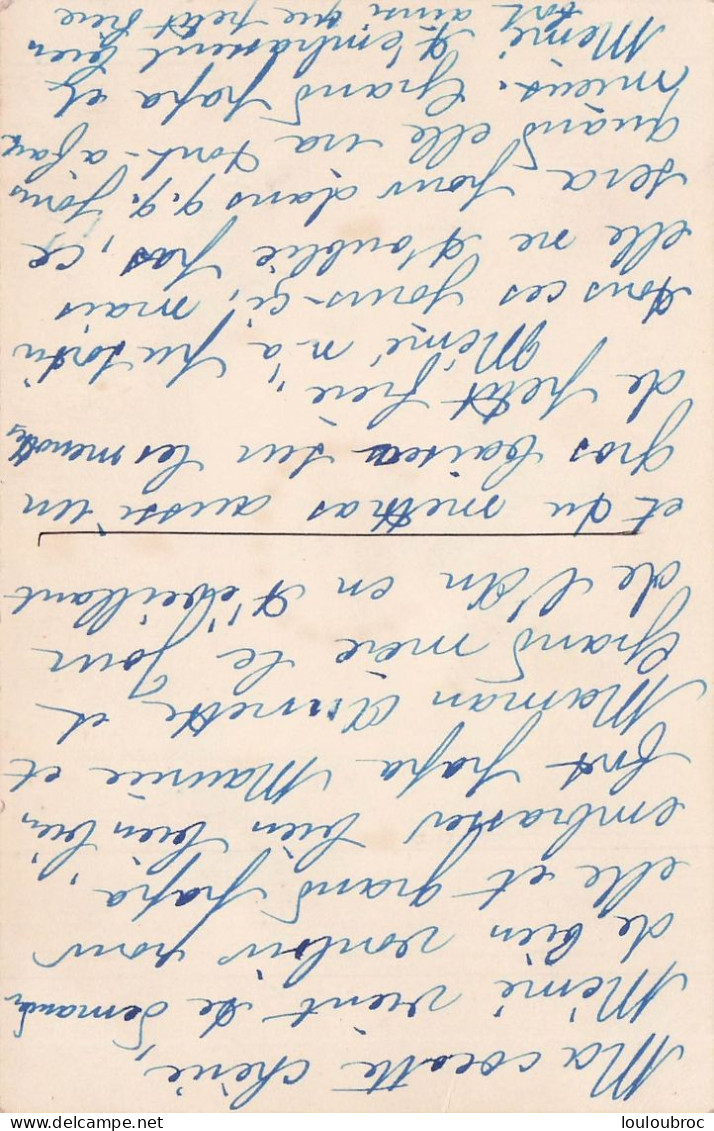 Ma cocotte chérie,
Mémé vient te demander
de bien vouloir pour
elle et grand papa,
embrasser bien bien bien
fort papa Maurice et
Maman Ginette et
Grand mère le jour
de l'An en t'éveillant
et du mettras aussi un
gros baiser sur les menottes
de petit frère,
Mémé n'a pu sortir
tous ces jours-ci, mais
elle ne t'oublie pas, ce
sera pour dans q.q. jours
quand elle ira tout-a-fait
mieux. Grand papa et
Mémé t'embrassent bien
fort ainsi que petit frère
www.delcampe.net
louloubroc